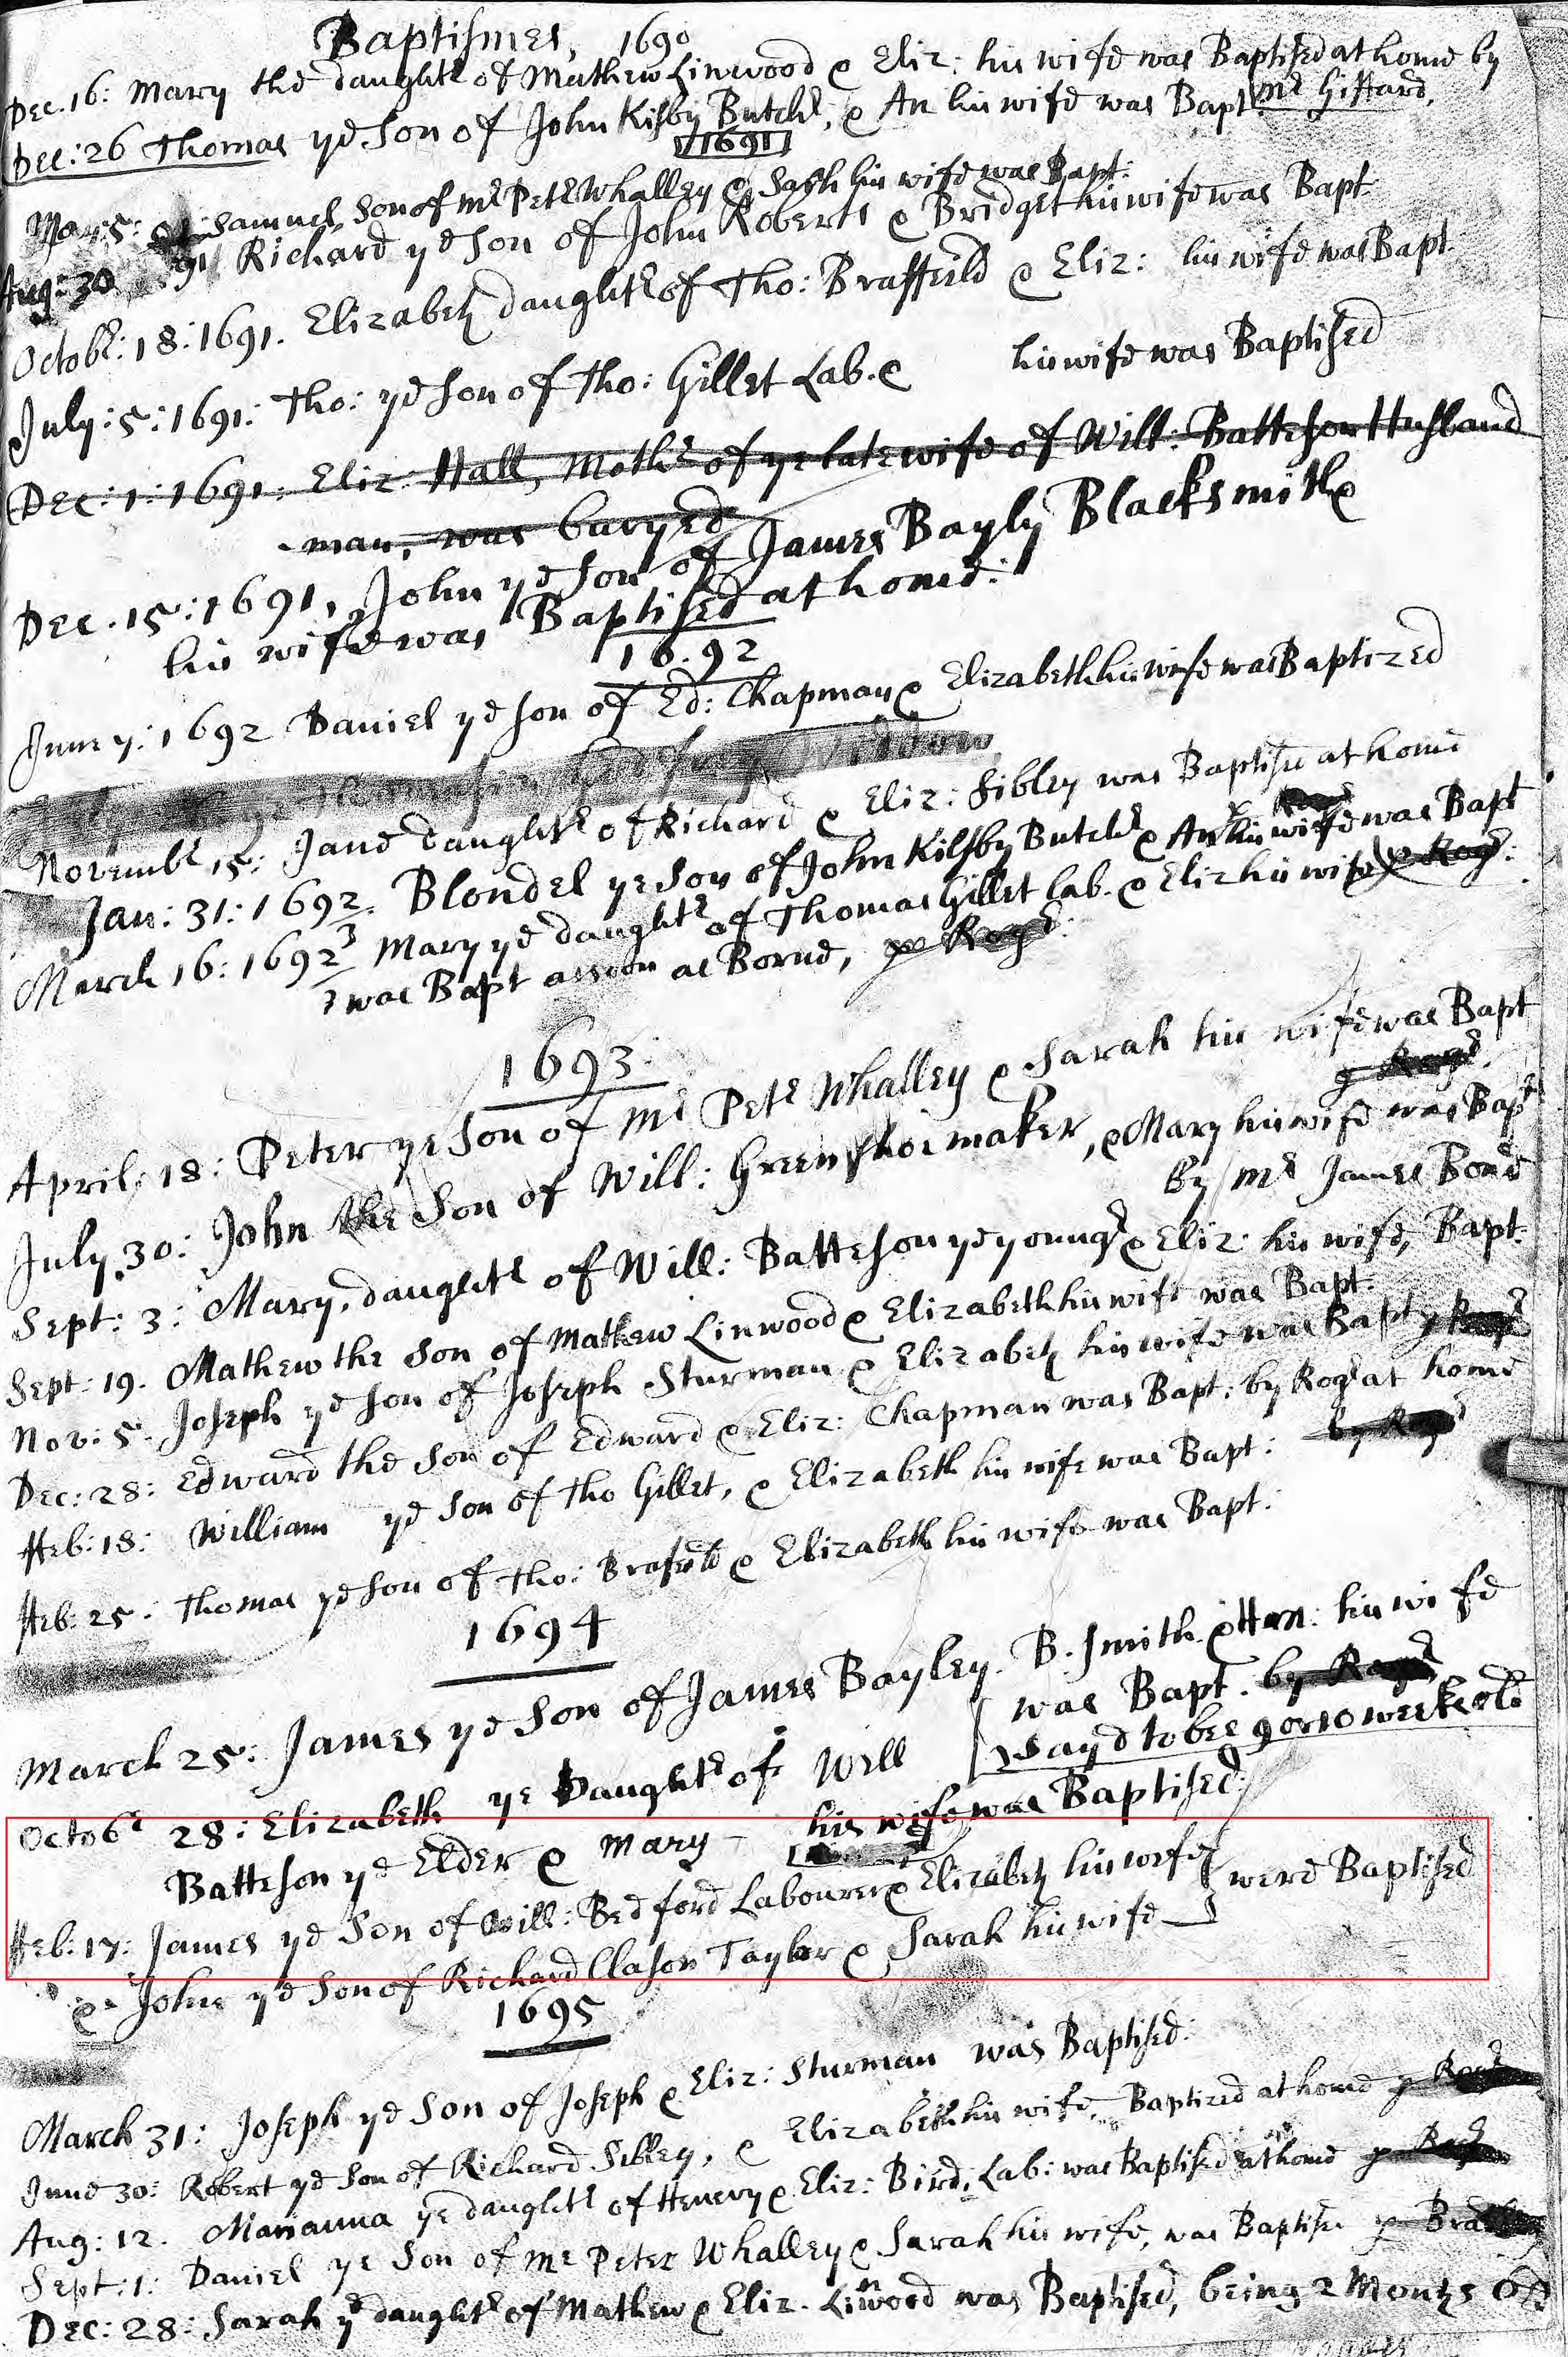 Baptismes, 1690
Dec. 16: Mary the daughtr of Mathew Linwood & Eliz: his wife was Baptised at home by
Mr Giffard.
Dec: 26 Thomas ye Son of John Kilsby Butchr, & An his wife was Bapt
1691
Mar: 5: Samuel Son of Mr Petr Whalley & Sarh his wife was Bapt:
Aug: 30 91 Richard ye Son of John Roberts & Bridget his wife was Bapt:
Octobr: 18: 1691. Elizabeth daughtr of Tho: Braffeild & Eliz: his wife was Bapt.
July: 5: 1691: Tho: ye Son of Tho: Gillet Lab. & his wife was Baptised
Dec: 1: 1691: Eliz: Hall, Mothr of ye late wife of Will: Batteson Husband
-man, was buryed
Dec. 15: 1691, John ye Son of James Bayly Blacksmith &
his wife was Baptised at home:
1692
June 7: 1692 Daniel ye Son of Ed: Chapman & Elizabeth his wife was Baptized
Widdow
Novembr 15: Jane daughtr of Richard & Eliz: Sibley was Baptise at home
Jan: 31: 1692. Blondel ye Son of John Kilsby Butchr & An his wife was Bapt
March 16: 1692 3 Mary ye daughtr of Thomas Gillet Lab. & Eliz his wife & Rogr:
was Bapt assoon as Borne, pr Rogr:
1693:
April: 18: Peter ye Son of Mr Petr Whalley & Sarah his wife was Bapt
July 30: John the Son of Will: Green shoemaker, & Mary his wife was Bapt
By Mr James Bond
Sept: 3: Mary, daughtr of Will: Batteson ye youngr & Eliz: his wife, Bapt.
Sept: 19. Mathew the Son of Mathew Linwood & Elizabeth his wife was Bapt.
Nov: 5. Joseph ye Son of Joseph Sturman & Elizabeth his wife was Bapt
Dec: 28: Edward the Son of Edward & Eliz: Chapman was Bapt: by Rogr at home
ffeb: 18: William ye Son of Tho Gillet, & Elizabeth his wife was Bapt: by
ffeb: 25: Thomas ye Son of Tho: Brafeild & Elizabeth his wife was Bapt:
1694
March 25: James ye Son of James Bayley. B. Smith & Han: his wife
was Bapt. by Rogr
Sayd to bee 9 or 10 weeks old
Octobr 28: Elizabeth ye Daughtr of Will
Batteson ye Elder & Mary - his wife was Baptised:
ffeb: 17: James ye Son of Will: Bedford Labourer & Elizabeth his wife
were Baptised
& John ye Son of Richard Clason Taylor & Sarah his wife
1695
March 31: Joseph ye Son of Joseph & Eliz: Sturman was Baptised:
June 30: Robert ye Son of Richard Sibley, & Elizabeth his wife, Baptized at home
Aug: 12. Marianna ye daughtr of Henery & Eliz: Bird, Lab: was Baptised at home
Sept: 1: Daniel ye Son of Mr Peter Whalley & Sarah his wife, was Baptise
Dec: 28: Sarah ye daughtr of Mathew & Eliz. Linwood was Baptised, being 2 Months Old